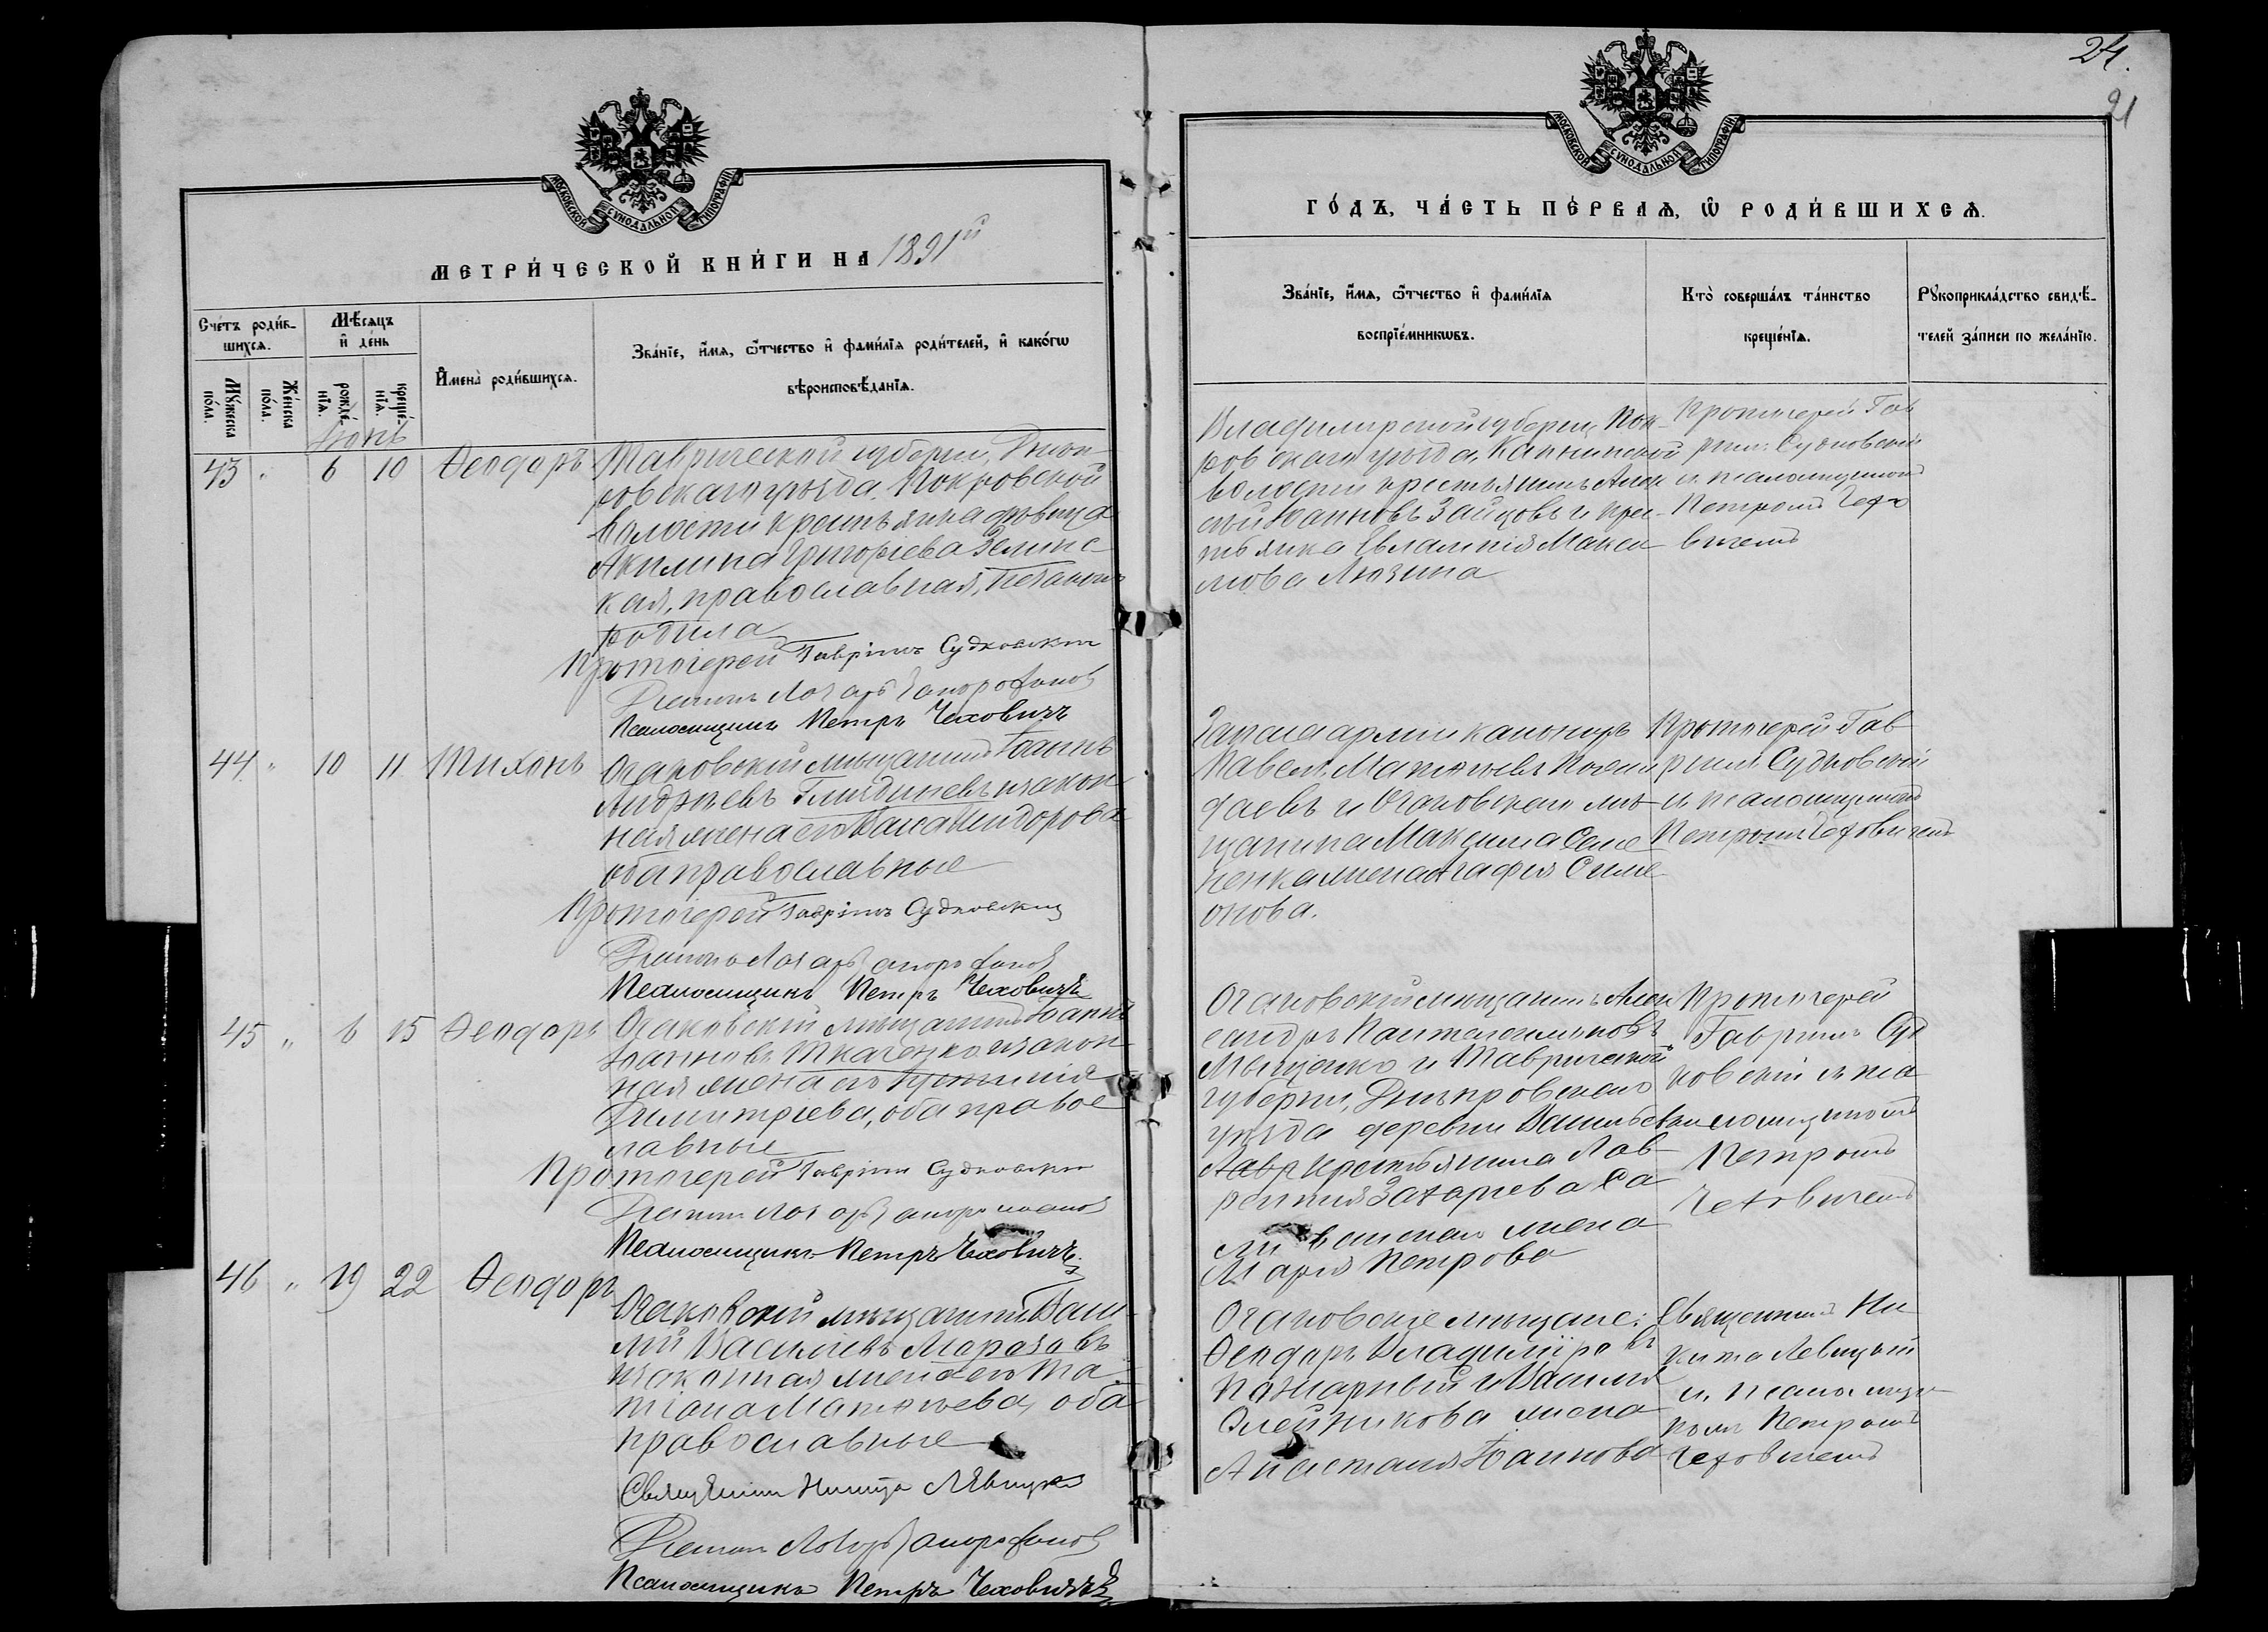 МОСКОВСКОЙ СѴНОДАЛЬНОЙ ТИПОГРАФІИ
МЕТРИ́ЧЕСКОЙ КНИ́ГИ НА 1891й
Сче́тъ роди́в-
шихсѧ.
Мѣ́сѧцъ
и҆ де́нь
Мꙋ́жеска
по́ла.
Же́нска
по́ла.
рожде́-
нїѧ.
креще́-
нїѧ.
И҆мена̀ роди́вшихсѧ.
Зва́нїе, и҆́мѧ, ѻ҆́тчество и҆ фами́лїѧ роди́телей, и҆ како́гѡ
вѣроисповѣ́данїѧ.
Іюнь
43 " 6 10 Ѳеодоръ Таврической губерніи, Днѣп-
ровскаго уѣзда, Покровской
волости крестьянка
Акилина Григоріева Зелинс-
кая, православная,
родила
Протоіерей Гавріилъ Судковскій
Діаконъ
Псаломщикъ Петръ Чеховичъ
44 " 10 11 Тихонъ Очаковскій мѣщанинъ Іоаннъ
Андреевъ и закон-
ная жена его
оба православные
Протоіерей Гавріилъ Судковскій
Діаконъ
Псаломщикъ Петръ Чеховичъ
45 " 6 15 Ѳеодоръ Очаковскій мѣщанинъ Іоаннъ
Іоанновъ Ткаченко и закон-
ная жена его
Димитріева, оба правос-
лавные
Протоіерей Гавріилъ Судковскій
Діаконъ
Псаломщикъ Петръ Чеховичъ
46 " 19 22 Ѳеодоръ
Очаковскій мѣщанинъ Васи-
лій Васильевъ Морозовъ
и законная жена его Та-
тіана Матѳіева, оба
православные
Священникъ Никита Левицкій
Діаконъ
Псаломщикъ Петръ Чеховичъ
24.
21
МОСКОВСКОЙ СѴНОДАЛЬНОЙ ТИПОГРАФІИ
ГО́ДЪ, ЧА́СТЬ ПЕ́РВАѦ, Ѡ҆ РОДИ́ВШИХСѦ.
Зва́нїе, и҆́мѧ, ѻ҆́тчество и҆ фами́лїѧ
воспрїе́мникѡвъ.
Кто̀ соверша́лъ та́инство
креще́нїѧ.
Рꙋкоприкла́дство свидѣ́-
телей за́писи по жела́нїю.
Владимірской губерніи, Пок-
ровскаго уѣзда,
волости крестьянинъ Алек-
сѣй Іоанновъ Зайцовъ и крес-
тьянка Евлампія Макси-
мова Люзина
Протоіерей Гав-
ріилъ Судковскій
и псаломщикомъ
Петромъ Чехо-
вичемъ
Запаса арміи канониръ
Павелъ Матѳіевъ
и Очаковскаго мѣ-
щанина Максима Семе-
ненка жена Агафія Симе-
онова.
Протоіерей Гав-
ріилъ Судковскій
и псаломщикомъ
Петромъ Чеховичемъ
Очаковскій мѣщанинъ Алек-
сандръ Пантелеимоновъ
Мыценко и Таврической
губерніи, Днѣпровскаго
уѣзда деревни
крестьянина Лав-
рентія Захаріева Са-
жена
Марія Петрова
Протоіерей
Гавріилъ Суд-
ковскій и пса-
ломщикомъ
Петромъ
Чеховичемъ
Очаковскіе мѣщане:
Ѳеодоръ Владиміровъ
Пожарный и Василія
Олейникова жена
Анастасія Іоаннова
Священникъ Ни-
кита Левицкій
и псаломщи-
комъ Петромъ
Чеховичемъ